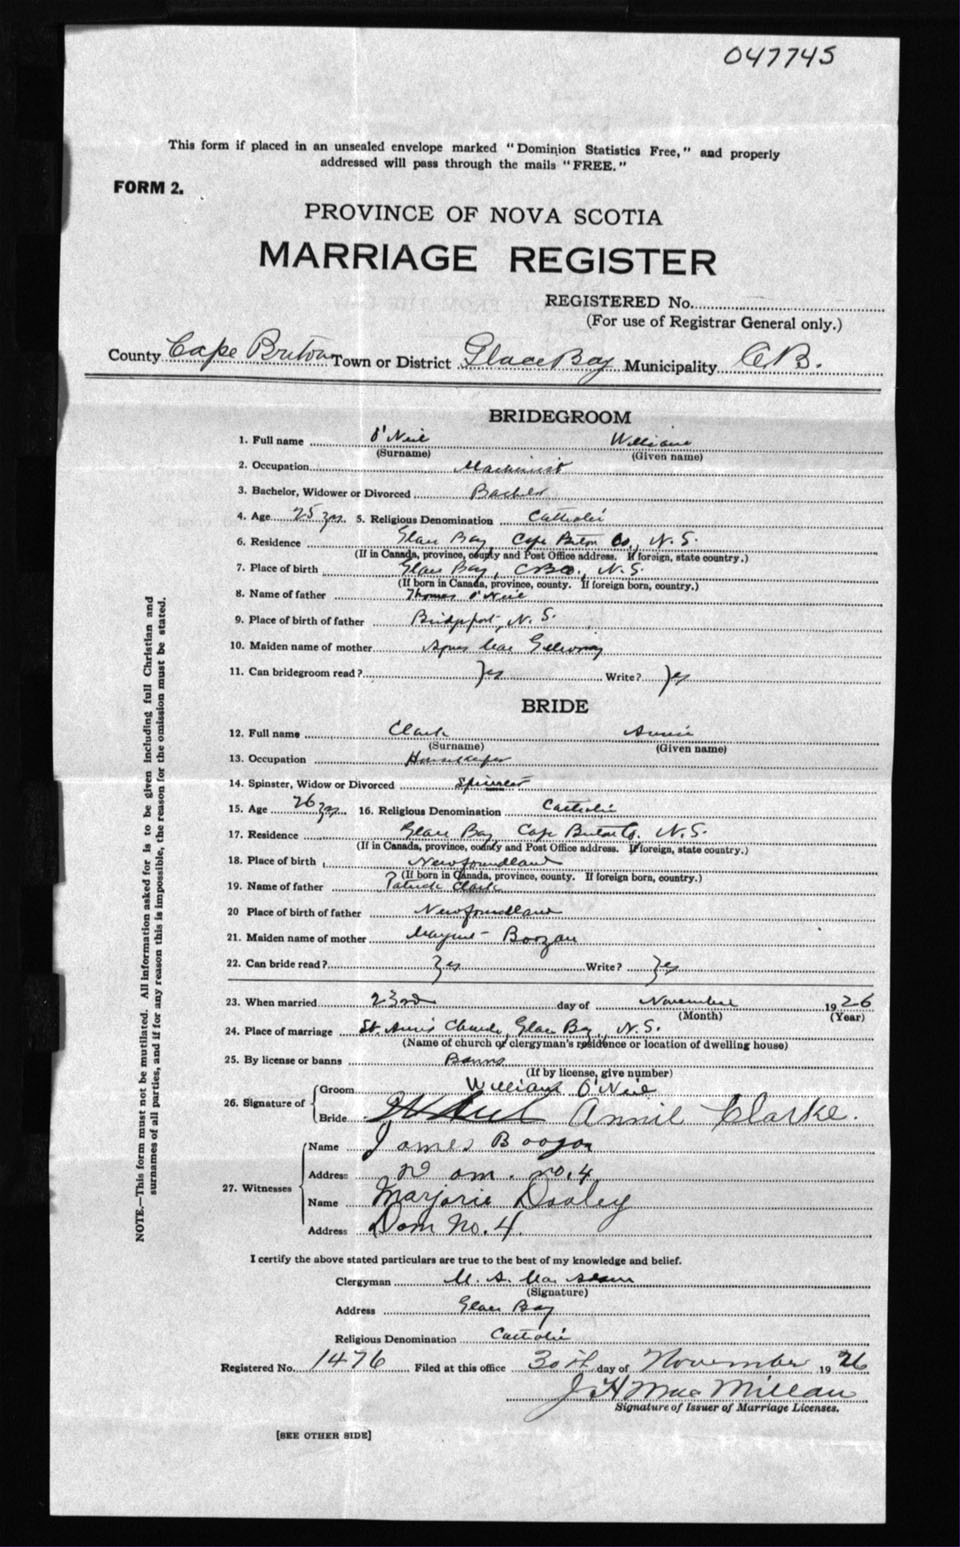 047745
This form if placed in an unsealed envelope marked "Dominion Statistics Free," and properly
addressed will pass through the mails "FREE."
FORM 2.
PROVINCE OF NOVA SCOTIA
MARRIAGE REGISTER
REGISTERED No.
(For use of Registrar General only.)
County Cape Breton Town or District Glace Bay Municipality C.B.
BRIDEGROOM
1. Full name O'Neil William
(Surname) (Given name)
2. Occupation Machinist
3. Bachelor, Widower or Divorced Bachelor
4. Age 25 yrs. 5. Religious Denomination Catholic
6. Residence Glace Bay Cape Breton Co., N.S.
(If in Canada, province, county and Post Office address. If foreign, state country.)
7. Place of birth Glace Bay, C.B.Co., N.S.
(If born in Canada, province, county. If foreign born, country.)
8. Name of father Thomas O'Neil
9. Place of birth of father Bridgeport, N.S.
10. Maiden name of mother Agnes
11. Can bridegroom read? Yes Write? Yes
BRIDE
12. Full name Clark Annie
(Surname) (Given name)
13. Occupation Housekeeper
14. Spinster, Widow or Divorced Spinster
15. Age 26 yrs. 16. Religious Denomination Catholic
17. Residence Glace Bay Cape Breton Co. N.S.
(If in Canada, province, county and Post Office address. If foreign, state country.)
18. Place of birth Newfoundland
(If born in Canada, province, county. If foreign born, country.)
19. Name of father Patrick Clark
20 Place of birth of father Newfoundland
21. Maiden name of mother Boozan
22. Can bride read? Yes Write? Yes
23. When married 23rd day of November 1926
(Month) (Year)
24. Place of marriage St Ann's Church, Glace Bay, N.S.
(Name of church or clergyman's residence or location of dwelling house)
25. By license or banns Banns
(If by license, give number)
26. Signature of
Groom William O'Neil
Bride Annie Clarke.
27. Witnesses
Name James Boozan
Address Dom. no. 4
Name Marjorie Dooley
Address Dom No. 4.
I certify the above stated particulars are true to the best of my knowledge and belief.
Clergyman M. A.
(Signature)
Address Glace Bay
Religious Denomination Catholic
Registered No. 1476 Filed at this office 30th day of November 1926
J H MacMillan
Signature of Issuer of Marriage Licenses.
[SEE OTHER SIDE]
NOTE.—This form must not be mutilated. All information asked for is to be given including full Christian and
surnames of all parties, and if for any reason this is impossible, the reason for the omission must be stated.